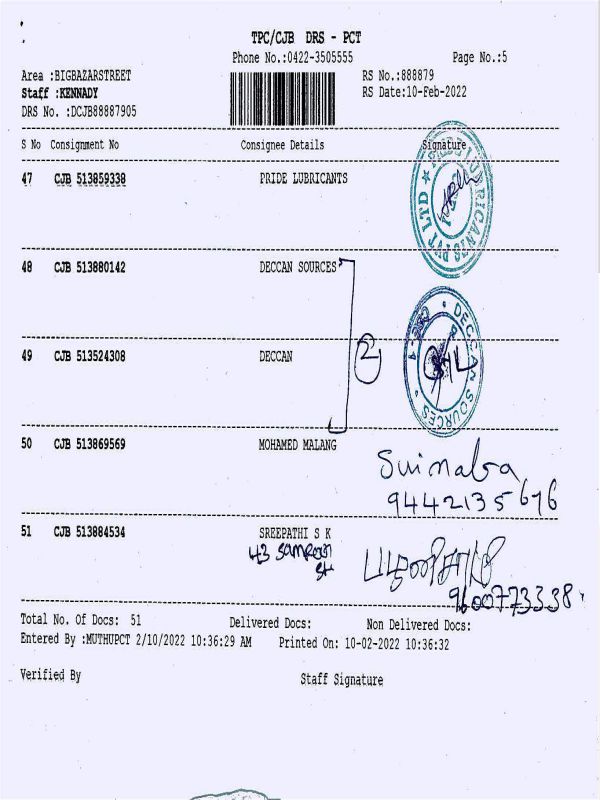 TPC/CJB DRS - PCT
Phone No.:0422-3505555 Page No.:5
Area :BIGBAZARSTREET RS No.:888879
Staff :KENNADY RS Date:10-Feb-2022
DRS No. :DCJB88887905
S No Consignment No Consignee Details Signature
47 CJB 513859338 PRIDE LUBRICANTS
LUBRICANTS PVT LTD
48 CJB 513880142 DECCAN SOURCES
2
DECCAN SOURCES
49 CJB 513524308 DECCAN
50 CJB 513869569 MOHAMED MALANG
9442135676
51 CJB 513884534 SREEPATHI S K
43
பழனிசாமி
9600773338
Total No. Of Docs: 51 Delivered Docs: Non Delivered Docs:
Entered By :MUTHUPCT 2/10/2022 10:36:29 AM Printed On: 10-02-2022 10:36:32
Verified By Staff Signature